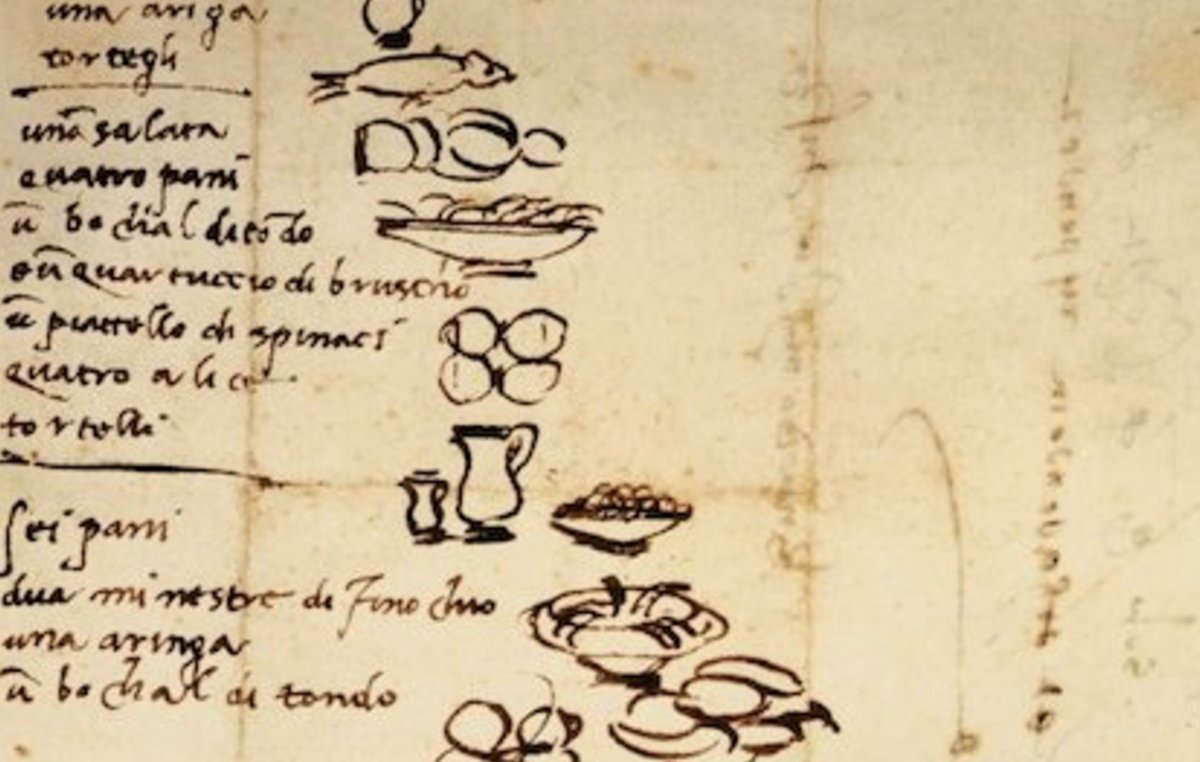 una ariga
tortegli
una salata
quatro pani
ū bochal di tōdo
e ū quartuccio di bruscho
ū piattello di spinaci
quatro alice
tortelli
sei pani
dua minestre di finochio
una aringa
ū bochal di tondo